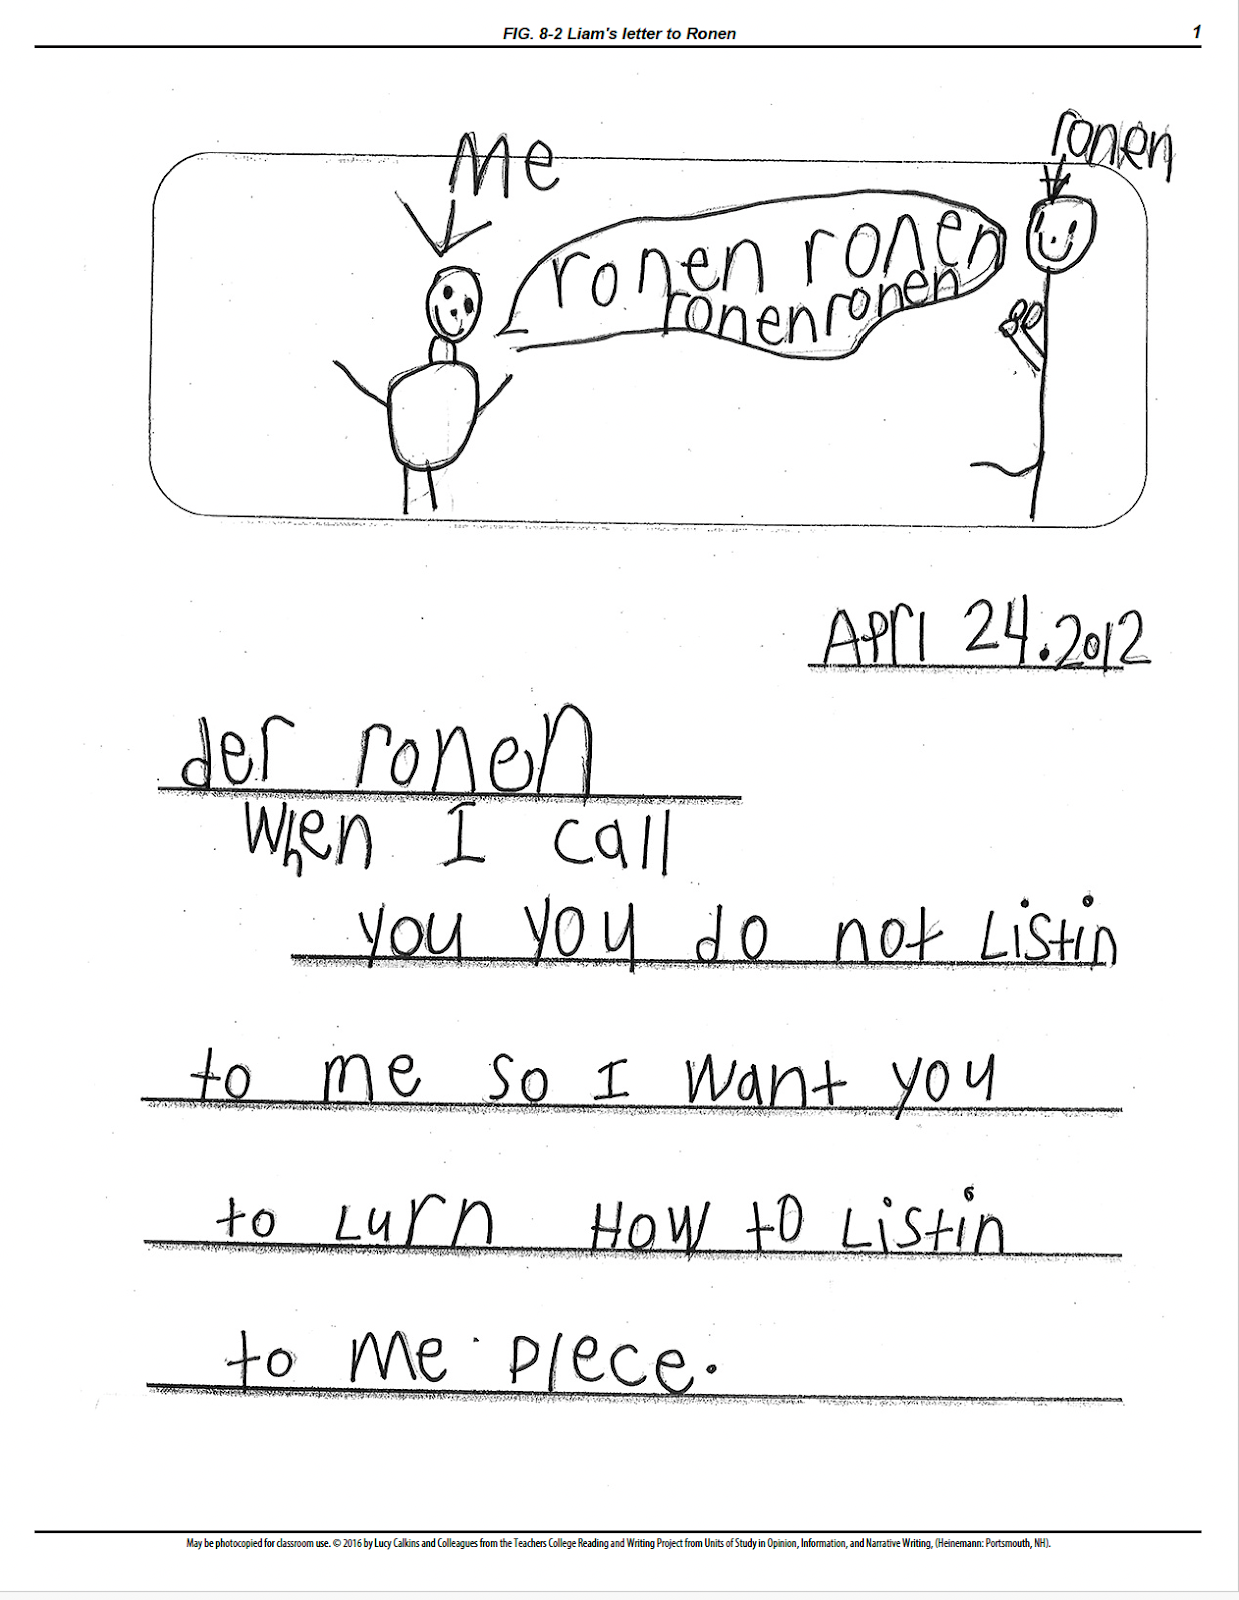 FIG. 8-2 Liam's letter to Ronen 1
Me
ronen
ronen ronen
ronen ronen
Aprl 24.2012
der ronen
When I call
you you do not Listin
to me so I want you
to Lurn How to Listin
to Me plece.
May be photocopied for classroom use. © 2016 by Lucy Calkins and Colleagues from the Teachers College Reading and Writing Project from Units of Study in Opinion, Information, and Narrative Writing, (Heinemann: Portsmouth, NH).